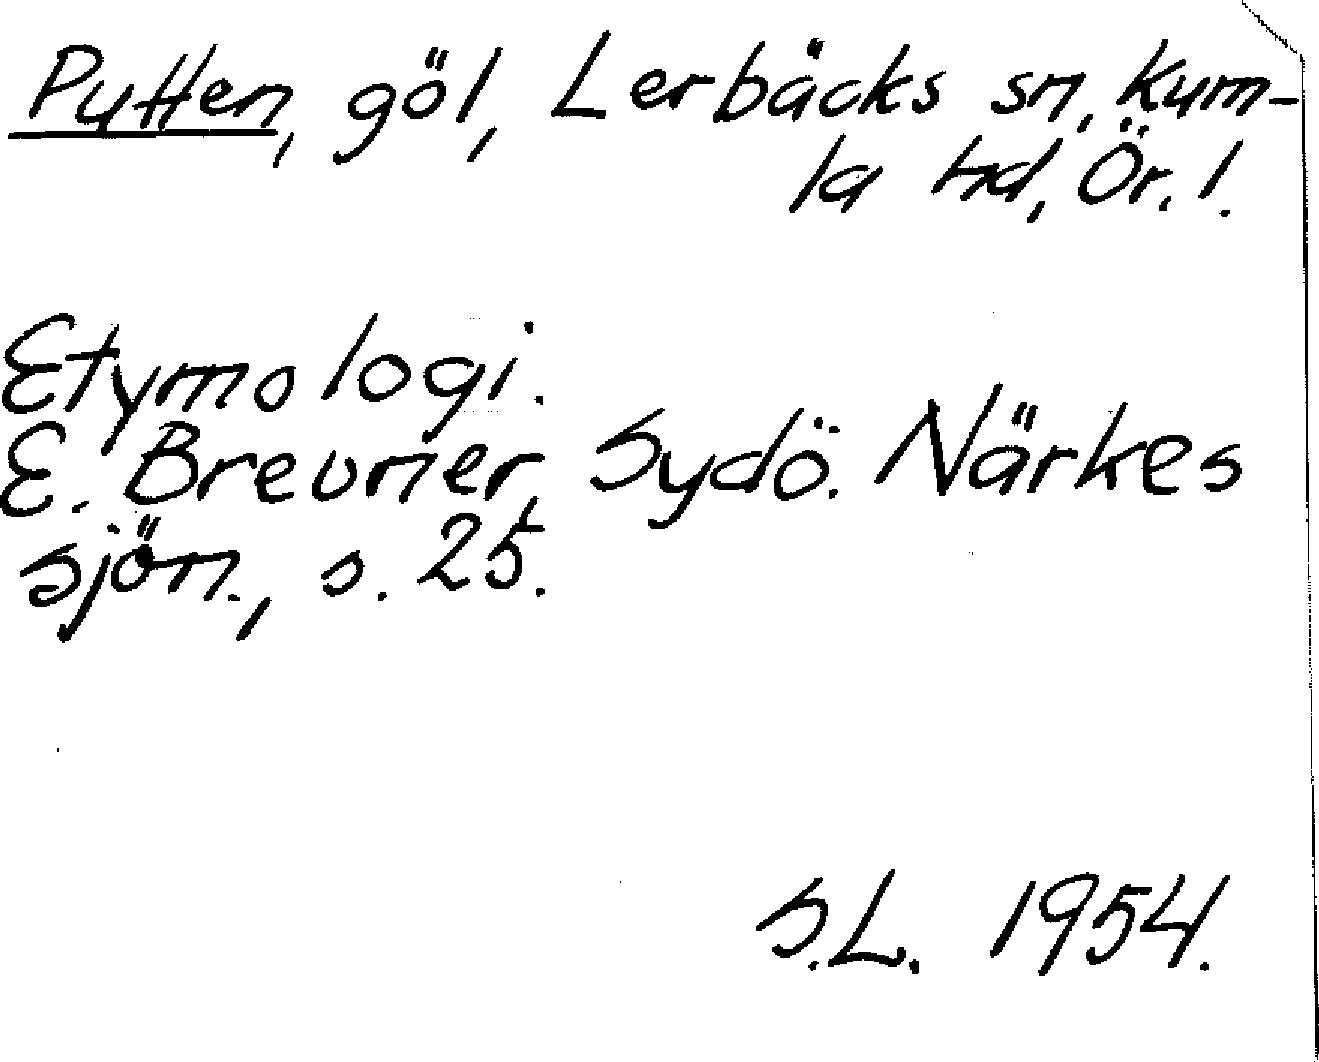 Pytten, göl, Lerbäcks sn, Kum-
la hd, Ör. l.
Etymologi.
E. Brevner, Sydö. Närkes
sjön., s. 25.
S.L. 1954.